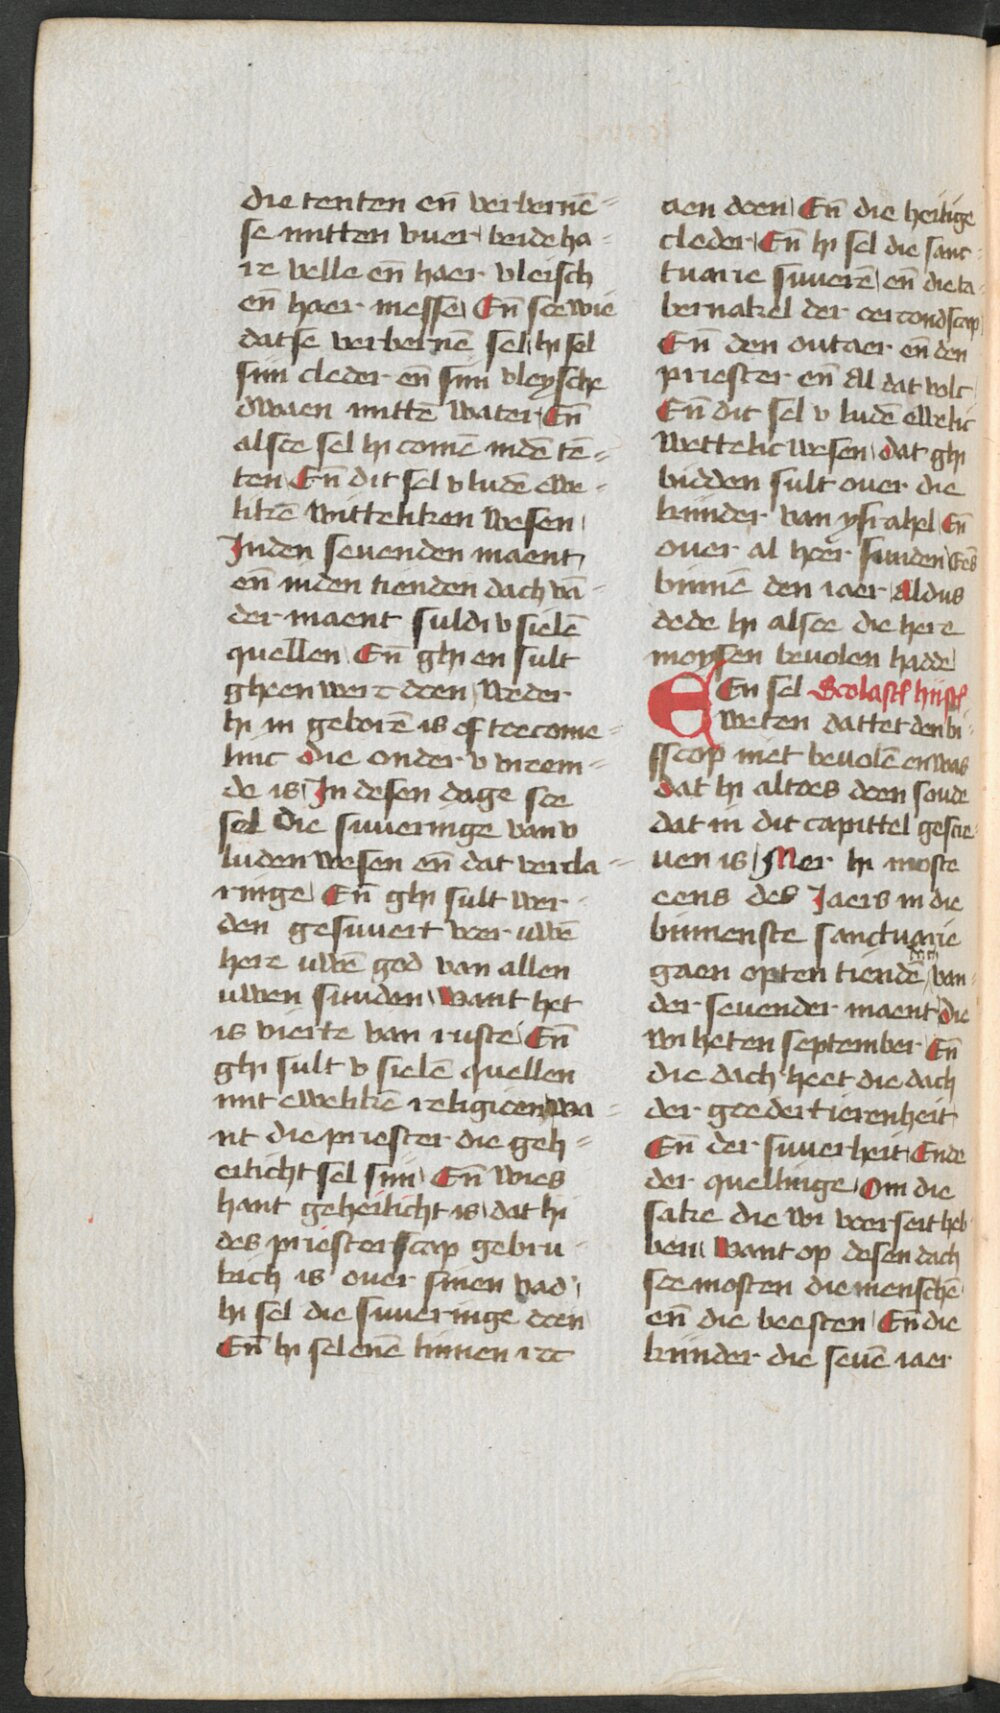 die tenten en̄ verbernē=
se mitten vuer beide ha=
re velle en̄ haer vleisch
en̄ haer messe En̄ soe wie
datse verbernē sel hi sel
sijn cleder en̄ sijn vleysche
dwaen mittē water En̄
alsoe sel hi comē indē tē=
ten En̄ dit sel v ludē ewe=
likē wittelikon wesen
Inden seuenden maent
en̄ inden tienden dach vā=
der maent suldi v sielē
quellen En̄ ghi en sult
gheen werc doen weder
hi in geborē is of toecome=
linc die onder v vreem=
de is In desen dage soe
sel die suueringe van v
luden wesen en̄ dat vercla=
ringe En̄ ghi sult wer=
den gesuuert voer uwē
here uwē god van allen
uwen sunden want het
is vierte van ruste En̄
ghi sult v sielē quellen
mit ewelikē religioen wa=
nt die priester die geh=
eilicht sel sijn En̄ wies
hant geheilicht is dat hi
des priesterscap gebru=
kich is ouer sinen vad'
hi sel die suueringe doen
En̄ hi sel enē linnen roc
aen doen En̄ die heilige
cleder En̄ hi sel die sanc=
tuarie suuerē en̄ die ta=
bernakel der oercondscap
En̄ den outaer en̄ den
priester en̄ al dat volc
En̄ dit sel v ludē ewelic
wettelic wesen dat ghi
bidden sult ouer die
kinder van ysrahel En̄
ouer al heer sunden Eēs
binnē den iaer Aldus
dede hi alsoe die here
moysen beuolen hadde
En sel Scolasti hijsti
weten dattet den bi=
sscop niet beuolē en was
dat hi altoes doen soude
dat in dit capittel gescre=
uen is Mer hi moste
eens des Jaers in die
binnenste sanctuarie
gaen opten tiendē van=
der seuender maent die
wi heten september En̄
die dach heet die dach
der goedertierenheit
En̄ der suuerheit Ende
der quellinge Om die
sake die wi voerseit heb=
ben want op desen dach
soe mosten die menschē
en̄ die beesten En̄ die
kinder die seuē iaer